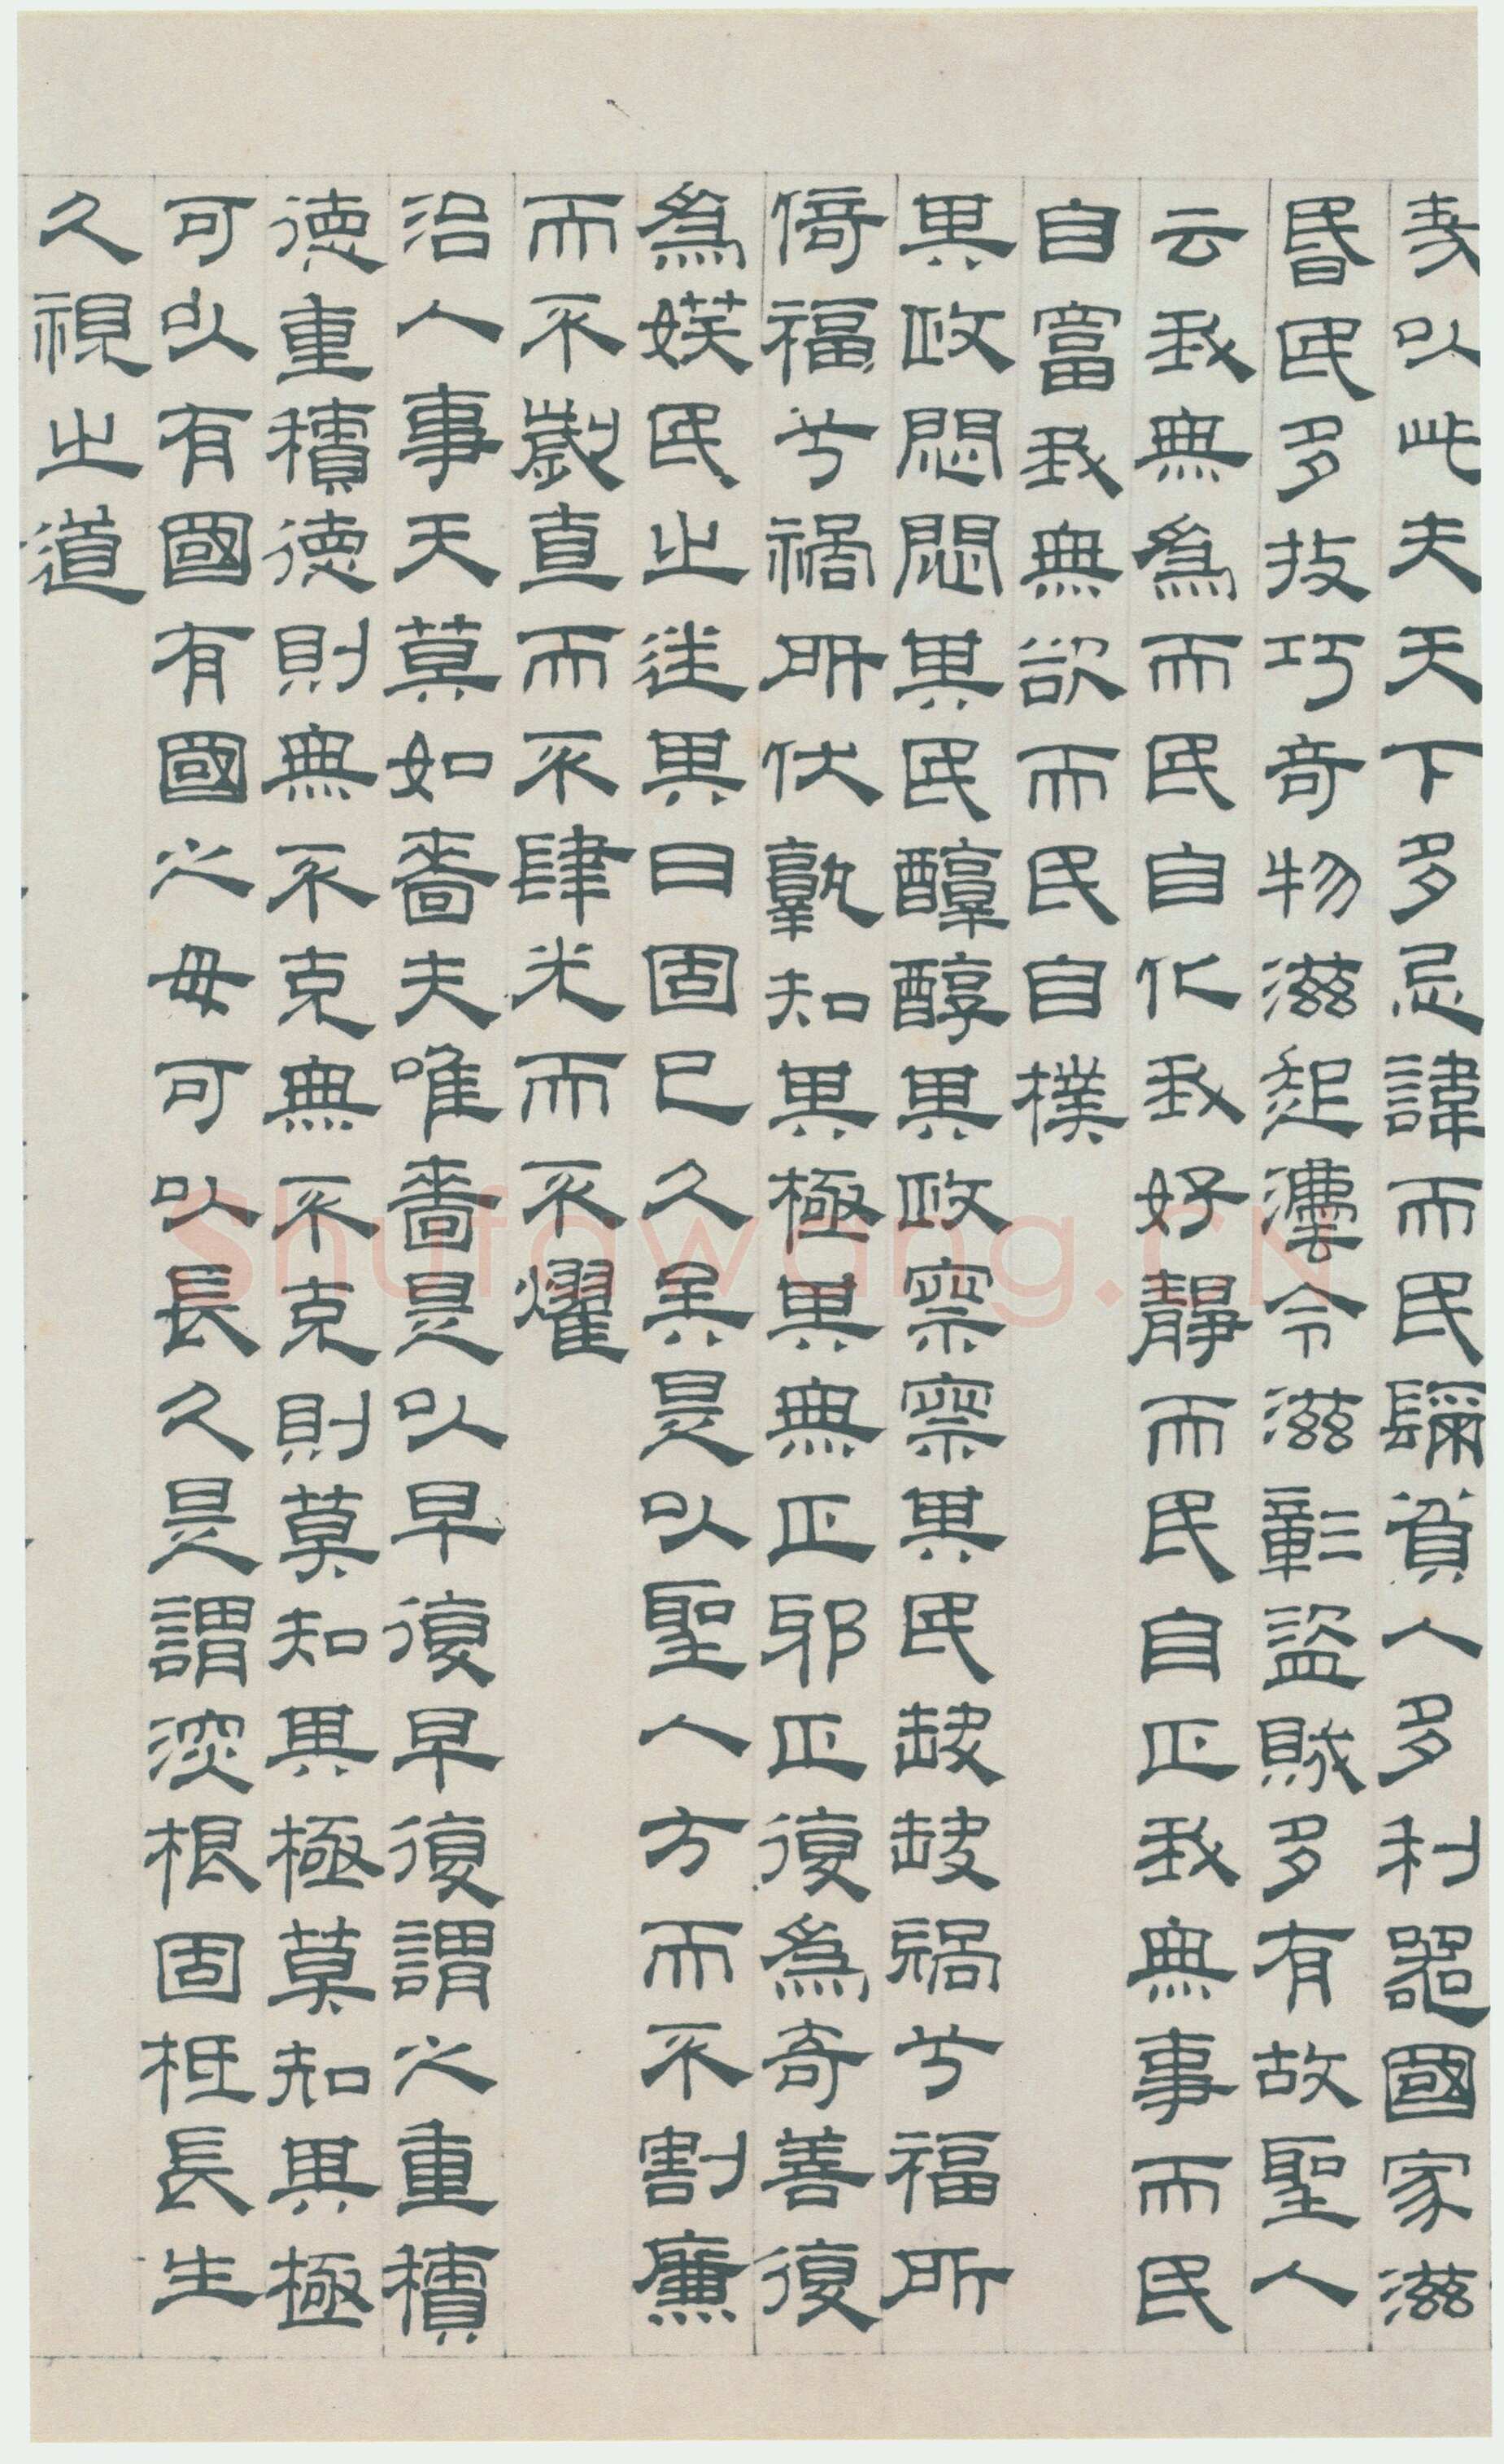 奚以此夫天下多忌諱而民彌貧人多利器國家滋
昬民多技巧奇物滋起灋令滋彰盜賊多有故聖人
云我無爲而民自化我好靜而民自正我無事而民
自富我無欲而民自樸
其政悶悶其民醇醇其政察察其民缺缺禍兮福所
倚福兮禍所伏孰知其極其無正邪正復爲奇善復
爲媄民之迷其日固已久矣是以聖人方而不割廉
而不劌直而不肆光而不耀
治人事天莫如嗇夫唯嗇是以早復早復謂之重積
德重積德則無不克無不克則莫知其極莫知其極
可以有國有國之母可以長久是謂深根固柢長生
久視之道
Shufawang.CN